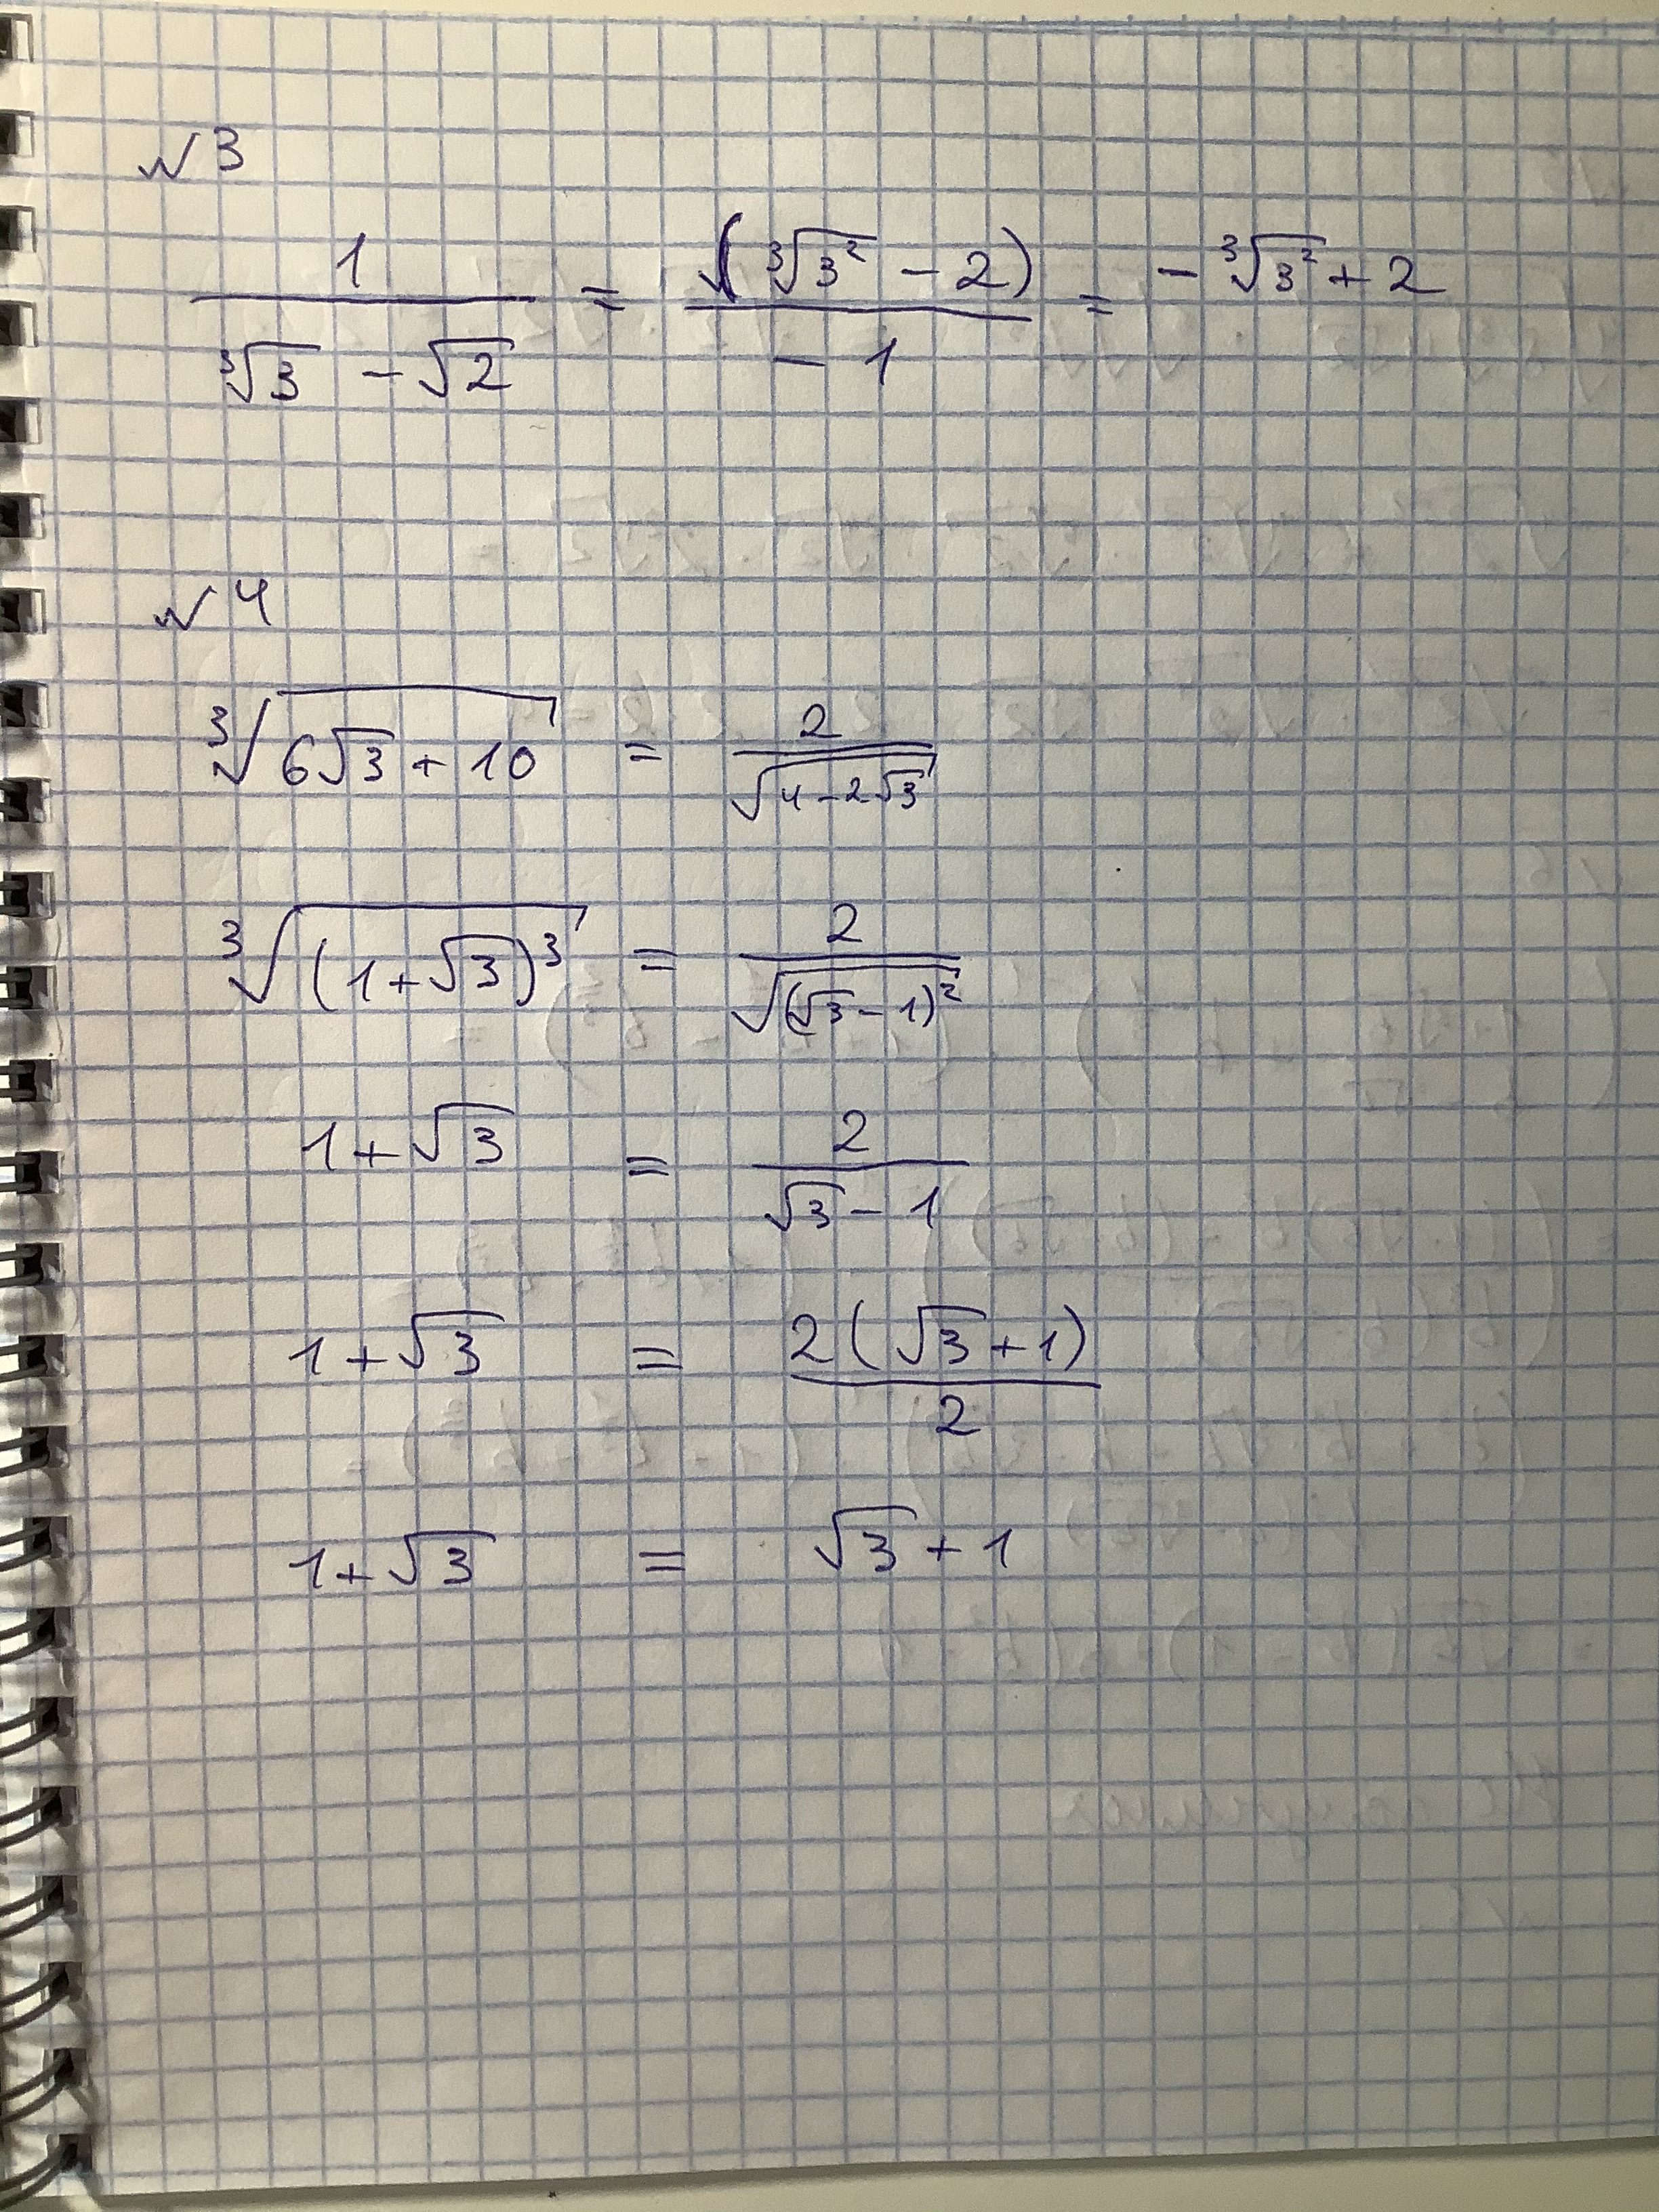 №3
1/(∛3 - √2) = (∛3² - 2)/(-1) = -∛3² + 2
№4
∛(6√3 + 10) = 2/√(4 - 2√3)
∛((1+√3)³) = 2/√((√3 - 1)²)
1+√3 = 2/(√3 - 1)
1+√3 = 2(√3+1)/2
1+√3 = √3 + 1